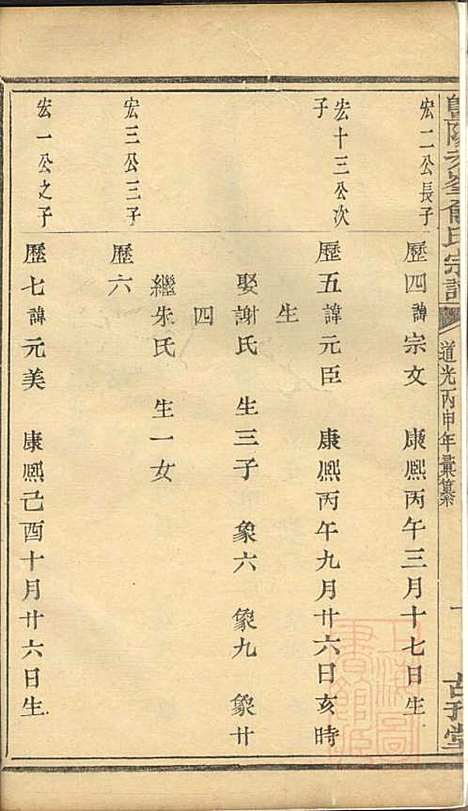 暨陽次峯俞氏宗譜
道光丙申年彙纂
宏二公長子
歷四諱宗文 康熙丙午三月十七日生
宏十三公次
子
歷五諱元臣 康熙丙午九月廿六日亥時
生
娶謝氏 生三子 象六 象九 象廿
四
繼朱氏 生一女
宏三公三子
歷六
宏一公之子
歷七諱元美 康熙己酉十月廿六日生
上海圖書館藏